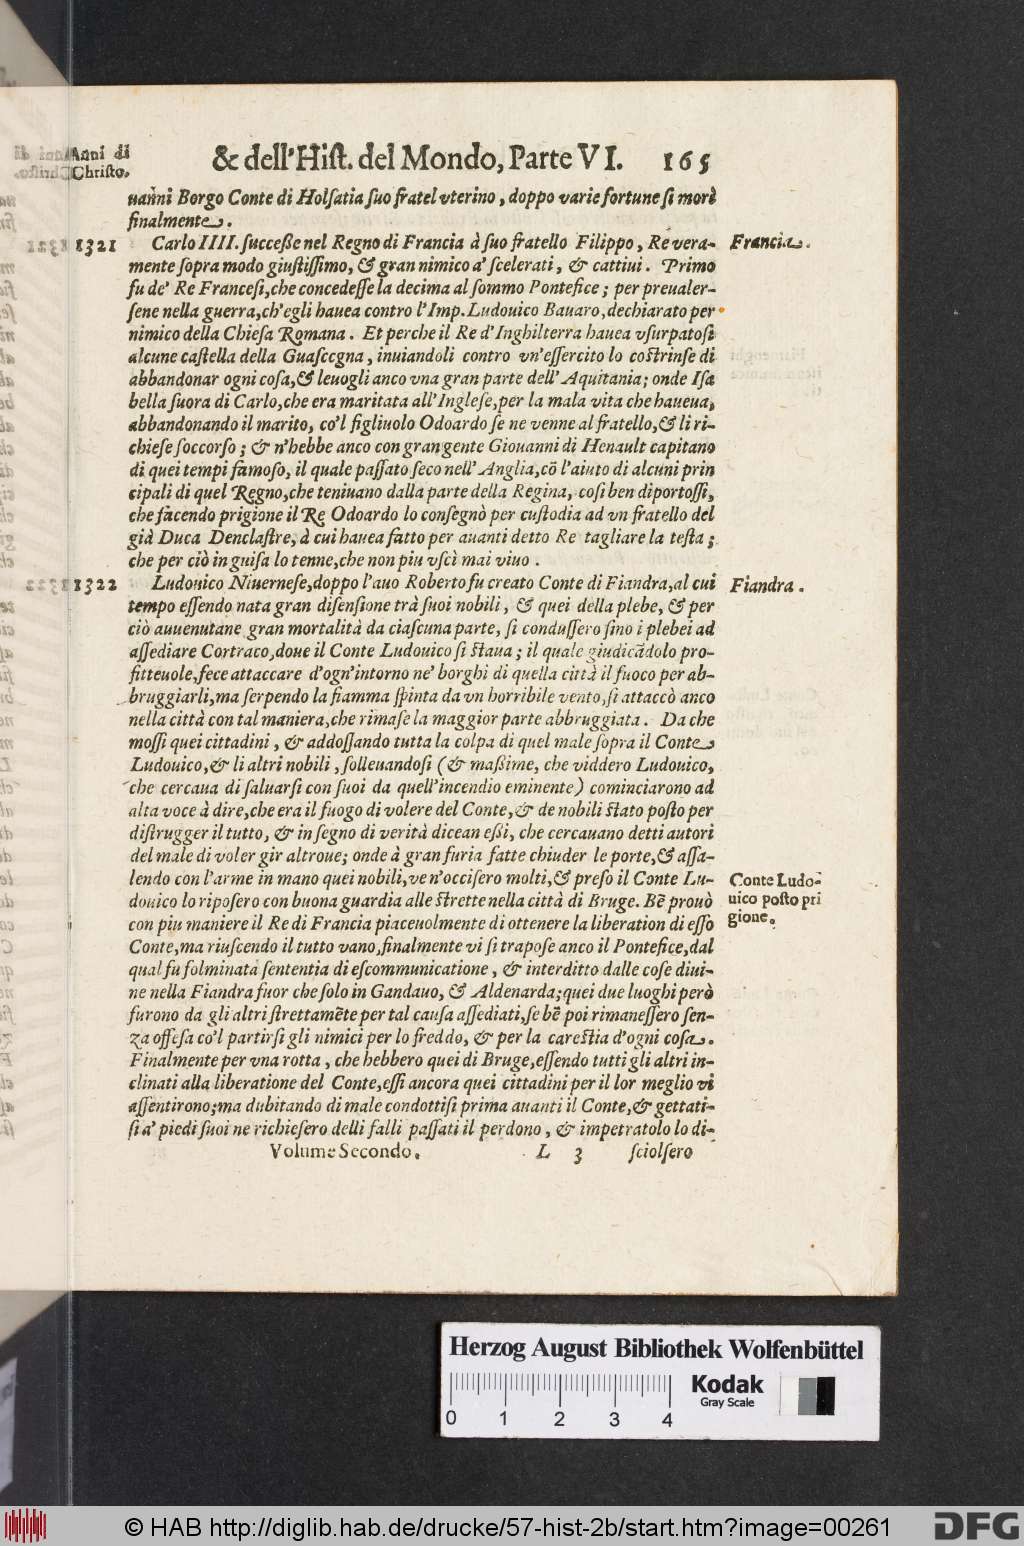 Anni di
Christo.
& dell'Hiſt. del Mondo, Parte VI. 165
uanni Borgo Conte di Holſatia ſuo fratel vterino, doppo varie fortune ſi morì
finalmente.
1321 Carlo IIII. ſucceße nel Regno di Francia à ſuo fratello Filippo, Re vera- Francia.
mente ſopra modo giuſtiſſimo, & gran nimico a' ſcelerati, & cattiui. Primo
fu de' Re Franceſi, che concedeſſe la decima al ſommo Pontefice; per preualer-
ſene nella guerra, ch'egli hauea contro l'Imp. Ludouico Bauaro, dechiarato per
nimico della Chieſa Romana. Et perche il Re d'Inghilterra hauea vſurpatoſi
alcune caſtella della Guaſcogna, inuiandoli contro vn'eſſercito lo coſtrinſe di
abbandonar ogni coſa, & leuogli anco vna gran parte dell'Aquitania; onde Iſa
bella ſuora di Carlo, che era maritata all'Ingleſe, per la mala vita che haueua,
abbandonando il marito, co'l figliuolo Odoardo ſe ne venne al fratello, & li ri-
chieſe ſoccorſo; & n'hebbe anco con gran gente Giouanni di Henault capitano
di quei tempi famoſo, il quale paſſato ſeco nell'Anglia, cō l'aiuto di alcuni prin
cipali di quel Regno, che teniuano dalla parte della Regina, coſi ben diportoſſi,
che facendo prigione il Re Odoardo lo conſegnò per cuſtodia ad vn fratello del
già Duca Denclaſtre, à cui hauea fatto per auanti detto Re tagliare la teſta;
che per ciò in guiſa lo tenne, che non piu vſcì mai viuo.
1322 Ludouico Niuerneſe, doppo l'auo Roberto fu creato Conte di Fiandra, al cui Fiandra.
tempo eſſendo nata gran diſenſione trà ſuoi nobili, & quei della plebe, & per
ciò auuenutane gran mortalità da ciaſcuna parte, ſi conduſſero ſino i plebei ad
aſſediare Cortraco, doue il Conte Ludouico ſi ſtaua; il quale giudicādolo pro-
fitteuole, fece attaccare d'ogn'intorno ne' borghi di quella città il fuoco per ab-
bruggiarli, ma ſerpendo la fiamma ſpinta da vn horribile vento, ſi attaccò anco
nella città con tal maniera, che rimaſe la maggior parte abbruggiata. Da che
moſſi quei cittadini, & addoſſando tutta la colpa di quel male ſopra il Conte
Ludouico, & li altri nobili, ſolleuandoſi (& maßime, che viddero Ludouico,
che cercaua di ſaluarſi con ſuoi da quell'incendio eminente) cominciarono ad
alta voce à dire, che era il fuogo di volere del Conte, & de nobili ſtato poſto per
diſtrugger il tutto, & in ſegno di verità dicean eßi, che cercauano detti autori
del male di voler gir altroue; onde à gran furia fatte chiuder le porte, & aſſa-
lendo con l'arme in mano quei nobili, ve n'occiſero molti, & preſo il Conte Lu- Conte Ludo-
douico lo ripoſero con buona guardia alle ſtrette nella città di Bruge. Bē prouò uico poſto pri
con piu maniere il Re di Francia piaceuolmente di ottenere la liberation di eſſo gione.
Conte, ma riuſcendo il tutto vano, finalmente vi ſi trapoſe anco il Pontefice, dal
qual fu folminata ſententia di eſcommunicatione, & interditto dalle coſe diui-
ne nella Fiandra fuor che ſolo in Gandauo, & Aldenarda; quei due luoghi però
furono da gli altri ſtrettamēte per tal cauſa aſſediati, ſe bē poi rimaneſſero ſen-
za offeſa co'l partirſi gli nimici per lo freddo, & per la careſtia d'ogni coſa.
Finalmente per vna rotta, che hebbero quei di Bruge, eſſendo tutti gli altri in-
clinati alla liberatione del Conte, eſſi ancora quei cittadini per il lor meglio vi
aſſentirono; ma dubitando di male condottiſi prima auanti il Conte, & gettati-
ſi a' piedi ſuoi ne richieſero delli falli paſſati il perdono, & impetratolo lo di-
Volume Secondo. L 3 ſciolſero
Herzog August Bibliothek Wolfenbüttel
0 1 2 3 4
Kodak
Gray Scale
© HAB http://diglib.hab.de/drucke/57-hist-2b/start.htm?image=00261
DFG